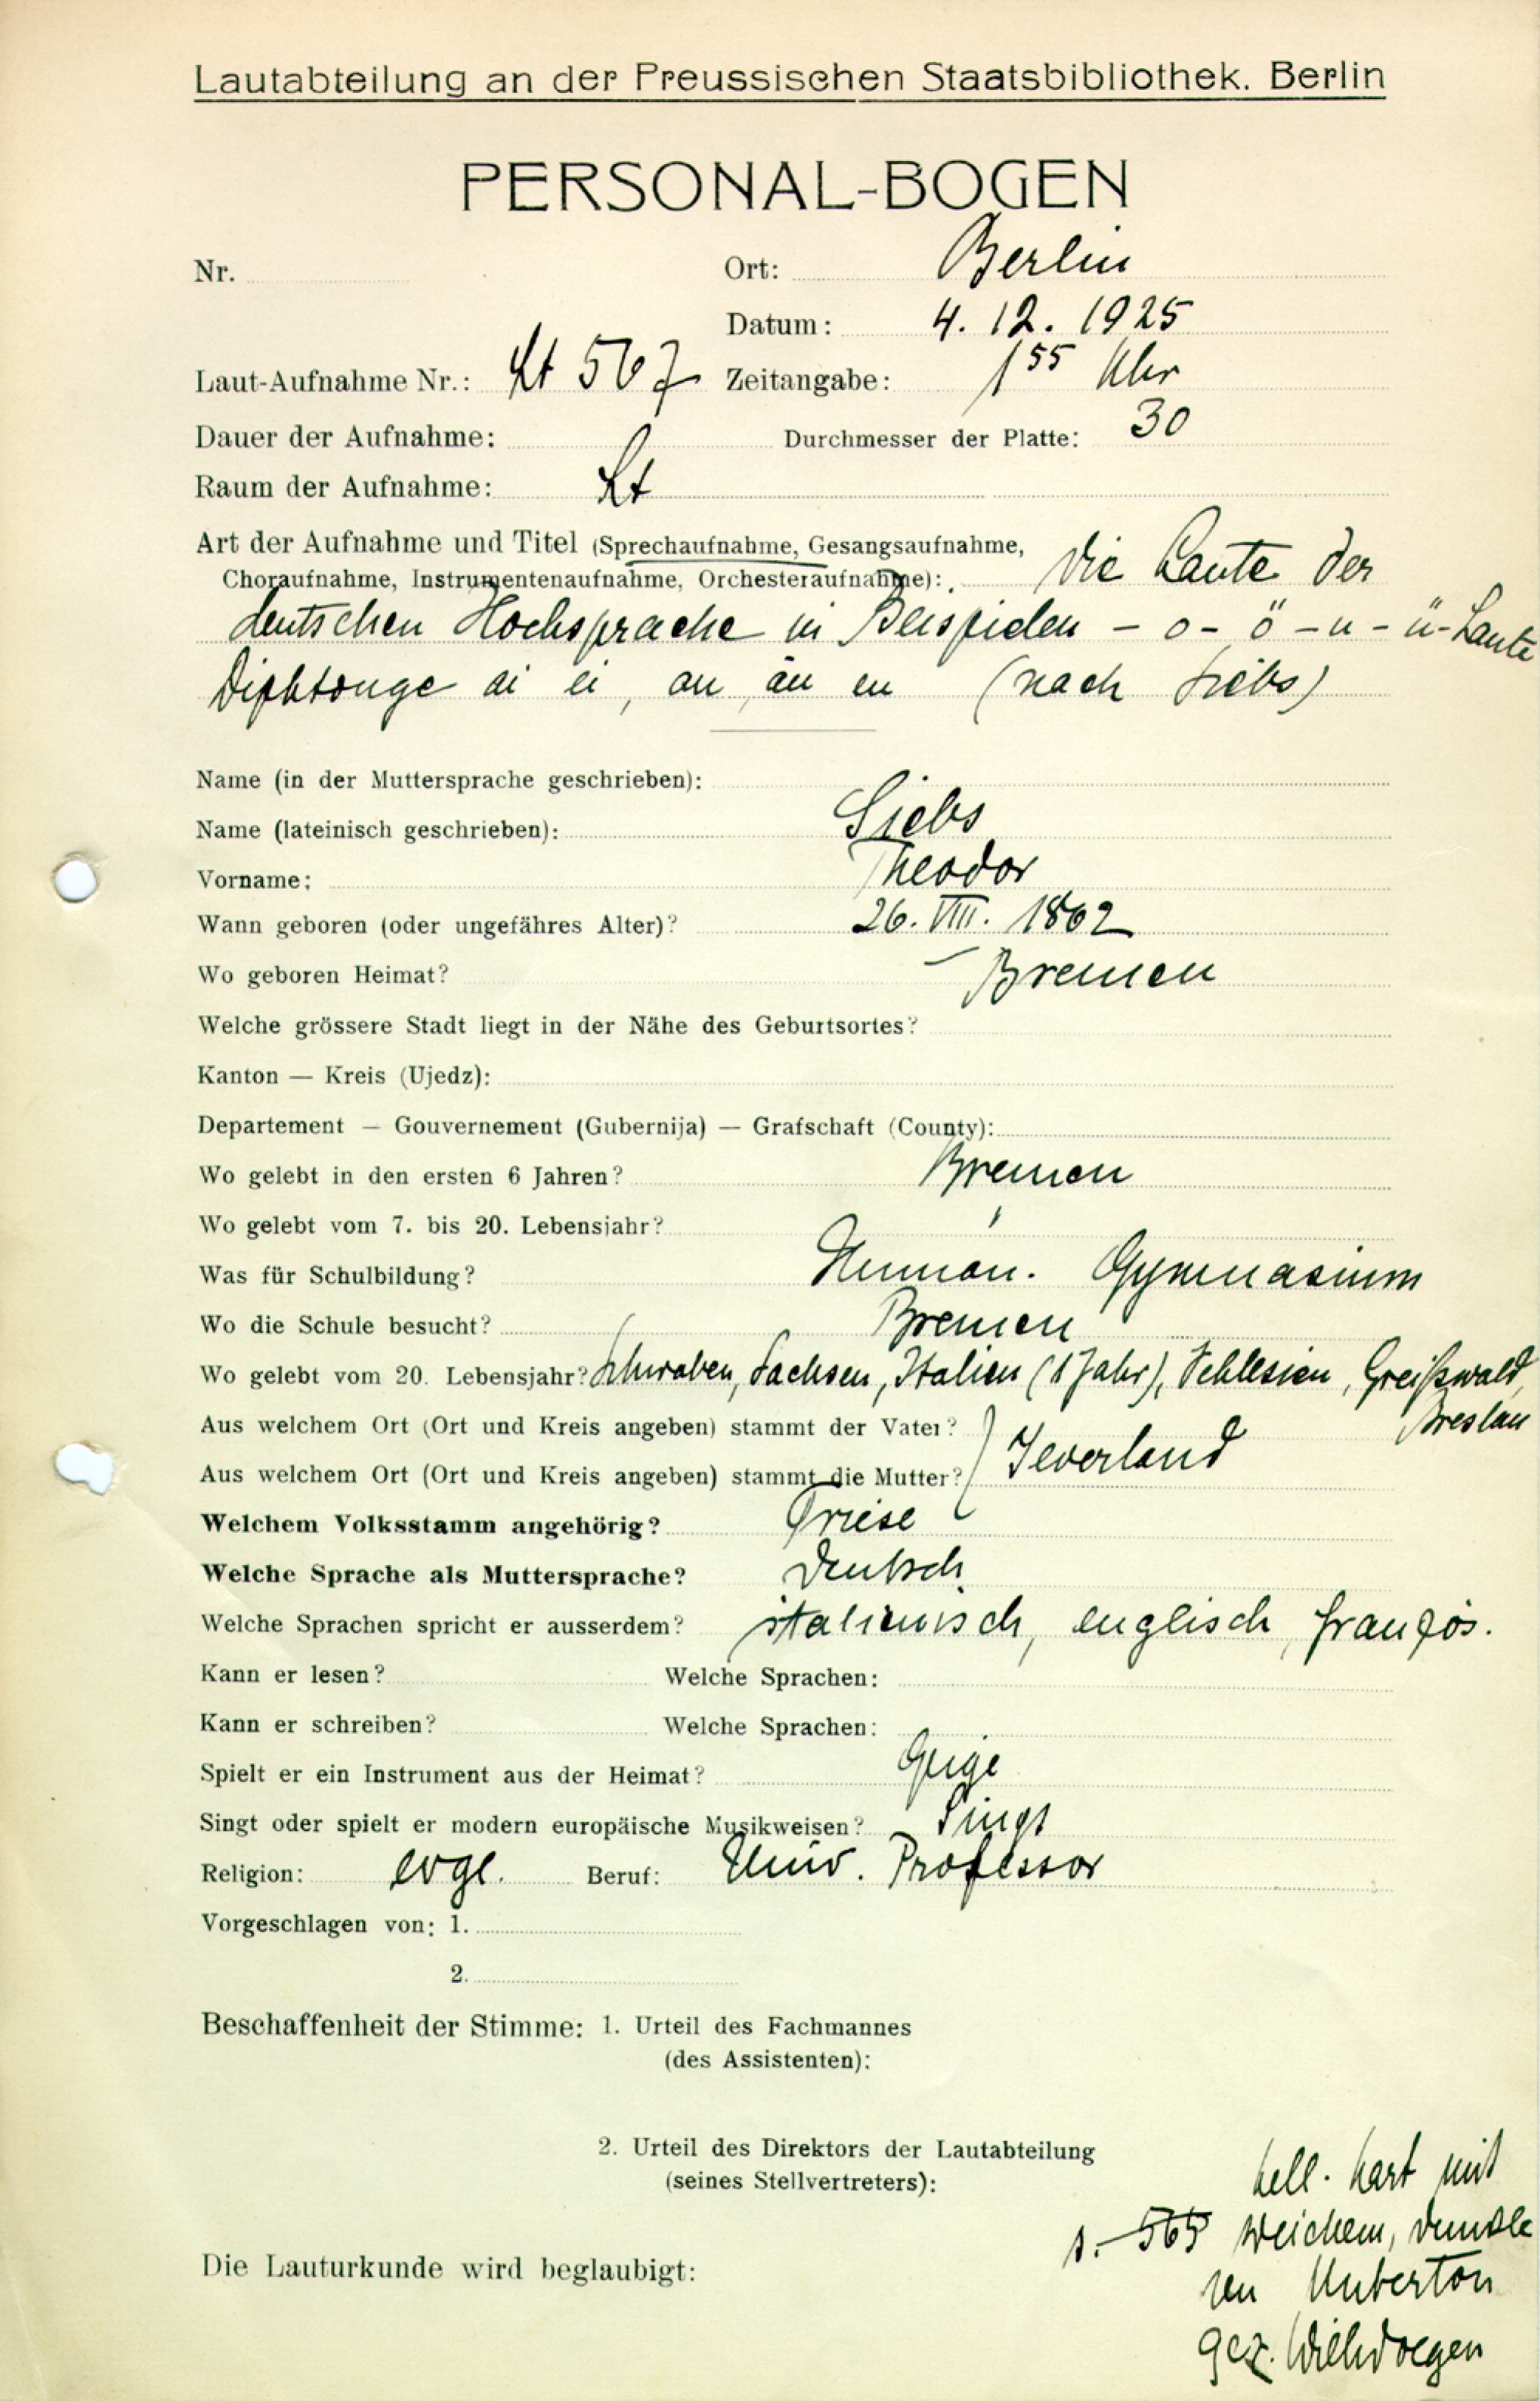 Lautabteilung an der Preussischen Staatsbibliothek. Berlin
PERSONAL-BOGEN
Nr. Ort: Berlin
Datum: 4. 12. 1925
Laut-Aufnahme Nr.: Lt 567 Zeitangabe: 1 55 Uhr
Dauer der Aufnahme: Durchmesser der Platte: 30
Raum der Aufnahme: Lt
Art der Aufnahme und Titel (Sprechaufnahme, Gesangsaufnahme,
Choraufnahme, Instrumentenaufnahme, Orchesteraufnahme): Die Laute der
deutschen Hochsprache in Beispielen - o - ö - u - ü - Laute
Diphtonge ai ei, au, äu eu (nach Siebs)
Name (in der Muttersprache geschrieben):
Name (lateinisch geschrieben): Siebs
Vorname: Theodor
Wann geboren (oder ungefähres Alter)? 26. VIII. 1862
Wo geboren Heimat? Bremen
Welche grössere Stadt liegt in der Nähe des Geburtsortes?
Kanton — Kreis (Ujedz):
Departement — Gouvernement (Gubernija) — Grafschaft (County):
Wo gelebt in den ersten 6 Jahren? Bremen
Wo gelebt vom 7. bis 20. Lebensjahr? "
Was für Schulbildung? Human. Gymnasium
Wo die Schule besucht? Bremen
Wo gelebt vom 20. Lebensjahr? Schwaben, Sachsen, Italien (1 Jahr), Schlesien, Greifswald,
Breslau
Aus welchem Ort (Ort und Kreis angeben) stammt der Vater?
Aus welchem Ort (Ort und Kreis angeben) stammt die Mutter? } Jeverland
Welchem Volksstamm angehörig? Friese
Welche Sprache als Muttersprache? Deutsch
Welche Sprachen spricht er ausserdem? italienisch, englisch, französ.
Kann er lesen? Welche Sprachen:
Kann er schreiben? Welche Sprachen:
Spielt er ein Instrument aus der Heimat? Geige
Singt oder spielt er modern europäische Musikweisen? Singt
Religion: evgl. Beruf: Univ. Professor
Vorgeschlagen von: 1.
2.
Beschaffenheit der Stimme: 1. Urteil des Fachmannes
(des Assistenten):
2. Urteil des Direktors der Lautabteilung
(seines Stellvertreters):
hell. hart mit
s. 565 weichem, dunkle
ren Unterton
Die Lauturkunde wird beglaubigt:
gez. Wilh Doegen